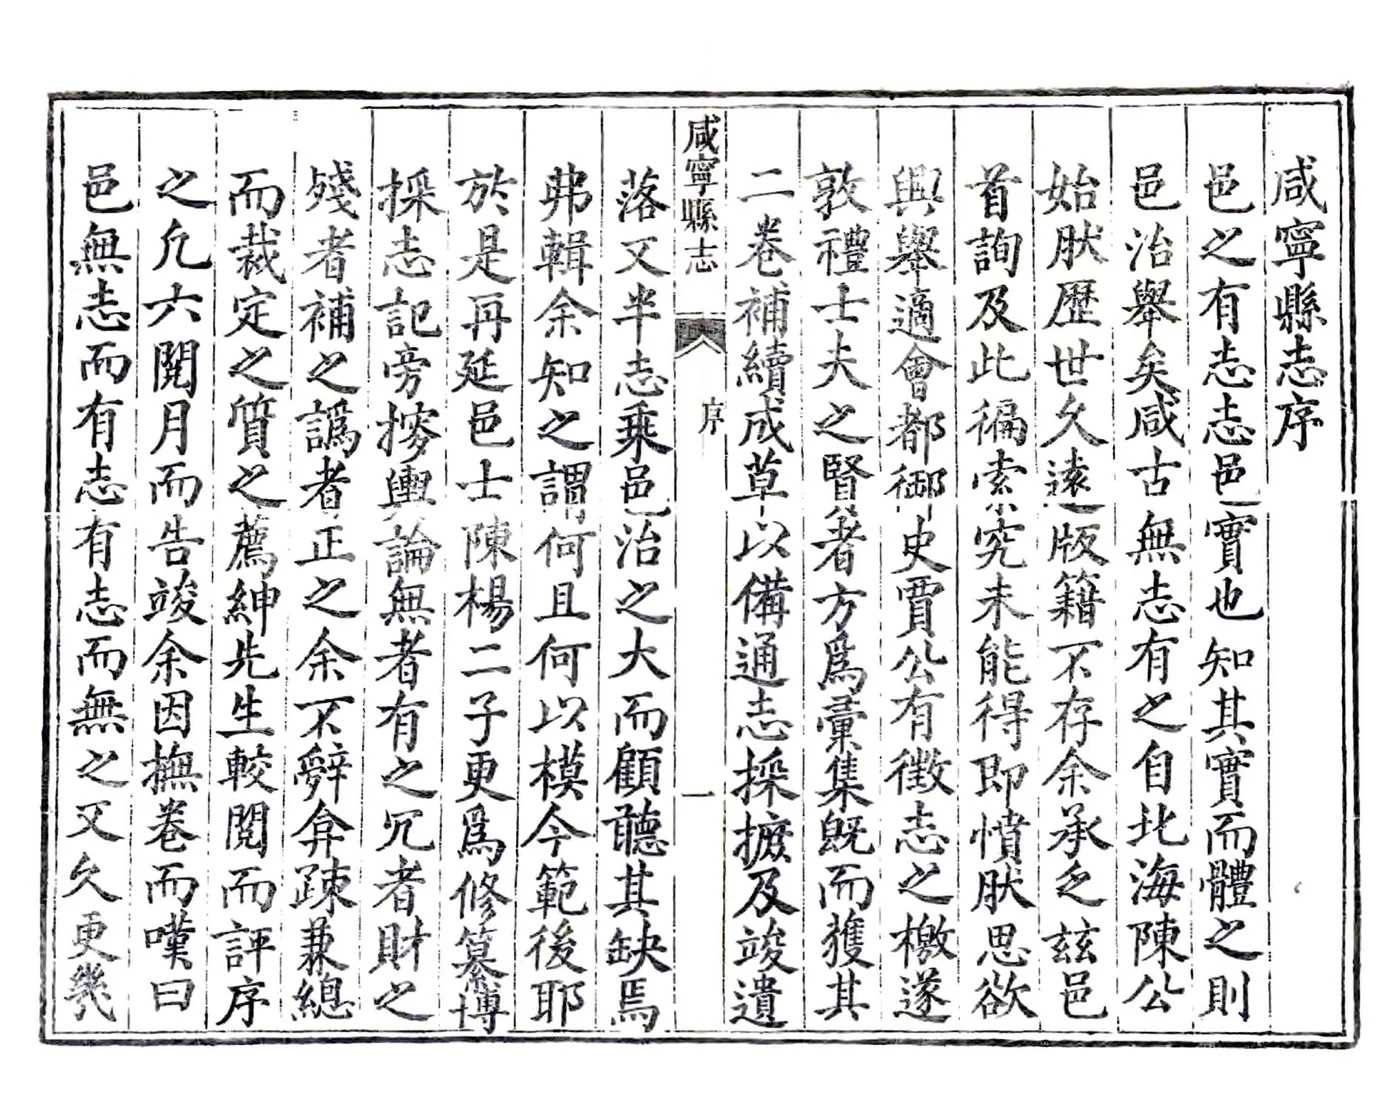 咸寧縣志序
邑之有志志邑實也知其實而體之則
邑治舉矣咸古無志有之自北海陳公
始肰歷世久遠版籍不存余承乏茲邑
首詢及此徧索究未能得即憤肰思欲
興舉適會都御史賈公有徵志之檄遂
敦禮士夫之賢者方爲彙集旣而獲其
二卷補續成草以備通志採摭及竣遺
咸寧縣志 序 一
落又半志乘邑治之大而顧聽其缺焉
弗輯余知之謂何且何以模今範後耶
於是再延邑士陳楊二子更爲修纂博
採志記旁摉輿論無者有之冗者財之
殘者補之譌者正之余不辭弇疎兼總
而裁定之質之薦紳先生較閱而評序
之凢六閱月而告竣余因撫卷而嘆曰
邑無志而有志有志而無之又久更幾